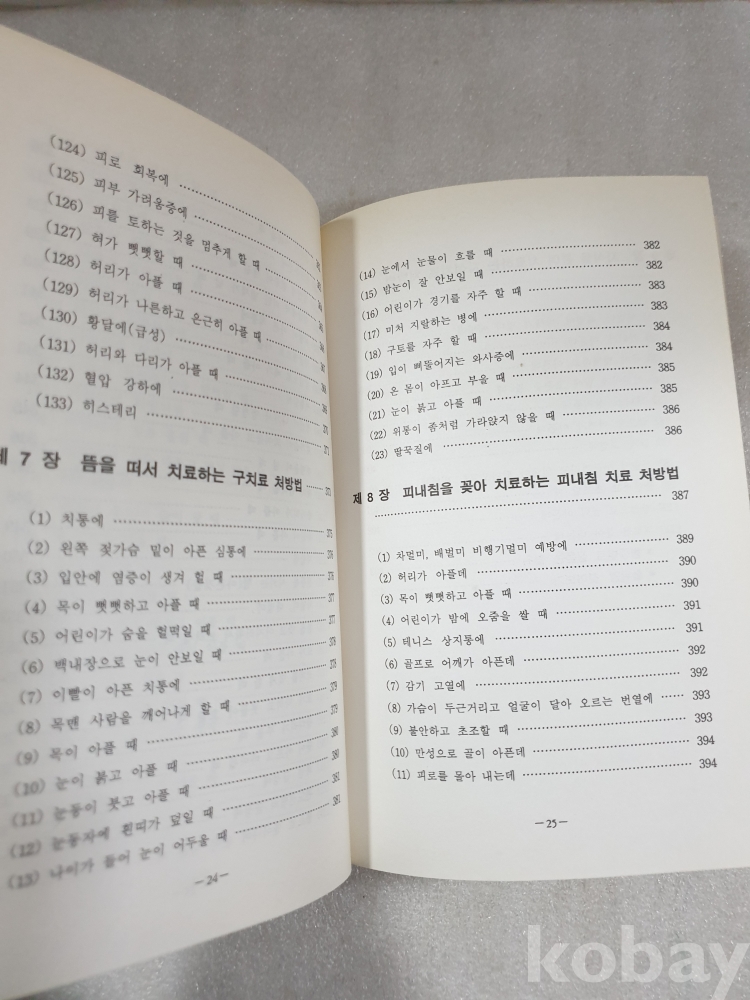 (124) 피로 회복에
(125) 피부 가려움증에
(126) 피를 토하는 것을 멈추게 할 때
(127) 혀가 뻣뻣할 때
(128) 허리가 아플 때
(129) 허리가 나른하고 은근히 아플 때
(130) 황달에(급성)
(131) 허리와 다리가 아플 때
(132) 혈압 강하에
(133) 히스테리
제 7 장 뜸을 떠서 치료하는 구치료 처방법 373
(1) 치통에 375
(2) 왼쪽 젖가슴 밑이 아픈 심통에 376
(3) 입안에 염증이 생겨 헐 때 376
(4) 목이 뻣뻣하고 아플 때 377
(5) 어린이가 숨을 헐떡일 때 377
(6) 백내장으로 눈이 안보일 때 378
(7) 이빨이 아픈 치통에 378
(8) 목맨 사람을 깨어나게 할 때 379
(9) 목이 아플 때 379
(10) 눈이 붉고 아플 때 380
(11) 눈동이 붓고 아플 때 380
(12) 눈동자에 흰띠가 덮일 때 381
(13) 나이가 들어 눈이 어두울 때 381
—24—
(14) 눈에서 눈물이 흐를 때 382
(15) 밤눈이 잘 안보일 때 382
(16) 어린이가 경기를 자주 할 때 383
(17) 미처 지랄하는 병에 383
(18) 구토를 자주 할 때 384
(19) 입이 삐뚤어지는 와사증에 384
(20) 온 몸이 아프고 부을 때 385
(21) 눈이 붉고 아플 때 385
(22) 위통이 좀처럼 가라앉지 않을 때 386
(23) 딸꾹질에 386
제 8 장 피내침을 꽂아 치료하는 피내침 치료 처방법
387
(1) 차멀미, 배멀미 비행기멀미 예방에 389
(2) 허리가 아픈데 390
(3) 목이 뻣뻣하고 아플 때 390
(4) 어린이가 밤에 오줌을 쌀 때 391
(5) 테니스 상지통에 391
(6) 골프로 어깨가 아픈데 392
(7) 감기 고열에 392
(8) 가슴이 두근거리고 얼굴이 달아 오르는 번열에 393
(9) 불안하고 초조할 때 393
(10) 만성으로 골이 아픈데 394
(11) 피로를 몰아 내는데 394
—25—
kobay